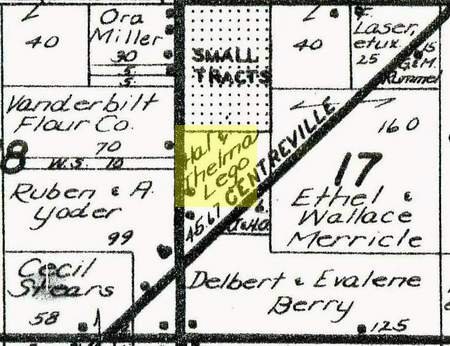 40
Ora
Miller
30
5
5
SMALL
TRACTS
40
Laser,
etux
25
15
G.&M.
Rummel
Vanderbilt
Flour Co.
70
W.S. 10
8
160
17
Hal &
Thelma
Lego
CENTREVILLE
45.67
Ruben & A.
Yoder
99
Ethel &
Wallace
Merricle
Cecil
Shears
58
Delbert & Evalene
Berry
125